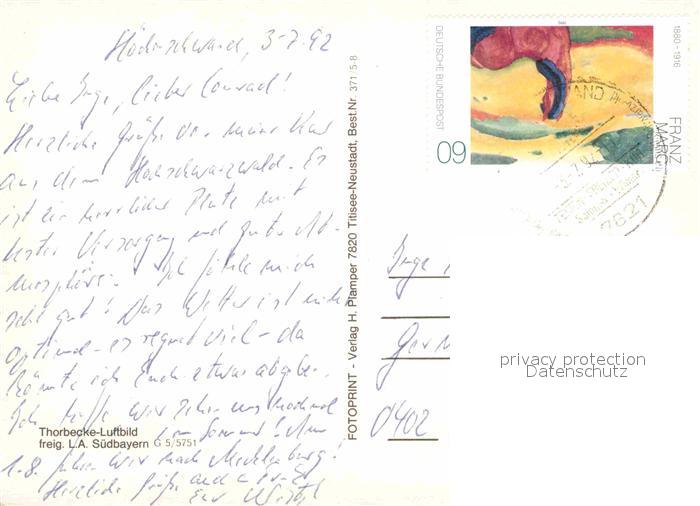 Höchenschwand, 3-7.92
Liebe Inge, lieber Conrad!
Herzliche Grüße von meiner Kur
aus dem Hochschwarzwald. Es
ist ein herrlicher mit
bester Versorgung und guter At-
mosphäre. Ich fühle mich
sehr gut! Das Wetter ist nicht
optimal - es regnet viel - da
könnte ich Euch etwas abgeben.
Ich hoffe wir sehen uns nochmal
im Sommer! Am
1.8. fahren wir nach Mecklenburg!
Herzliche Grüße auch
Euer
Thorbecke-Luftbild
freig. L.A. Südbayern G 5/5751
FOTOPRINT - Verlag H. Plamper 7820 Titisee-Neustadt, Best.Nr. 371 5-8
DEUTSCHE BUNDESPOST
60
FRANZ MARC
1880-1916
7821
Inge
Ger
0402
privacy protection
Datenschutz